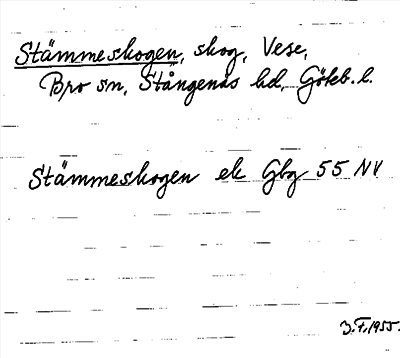 Stämmeskogen, skog, Vese,
Bro sn, Stångenäs hd, Göteb. l.
Stämmeskogen ek Gbg 55 NV
3.7.1955.